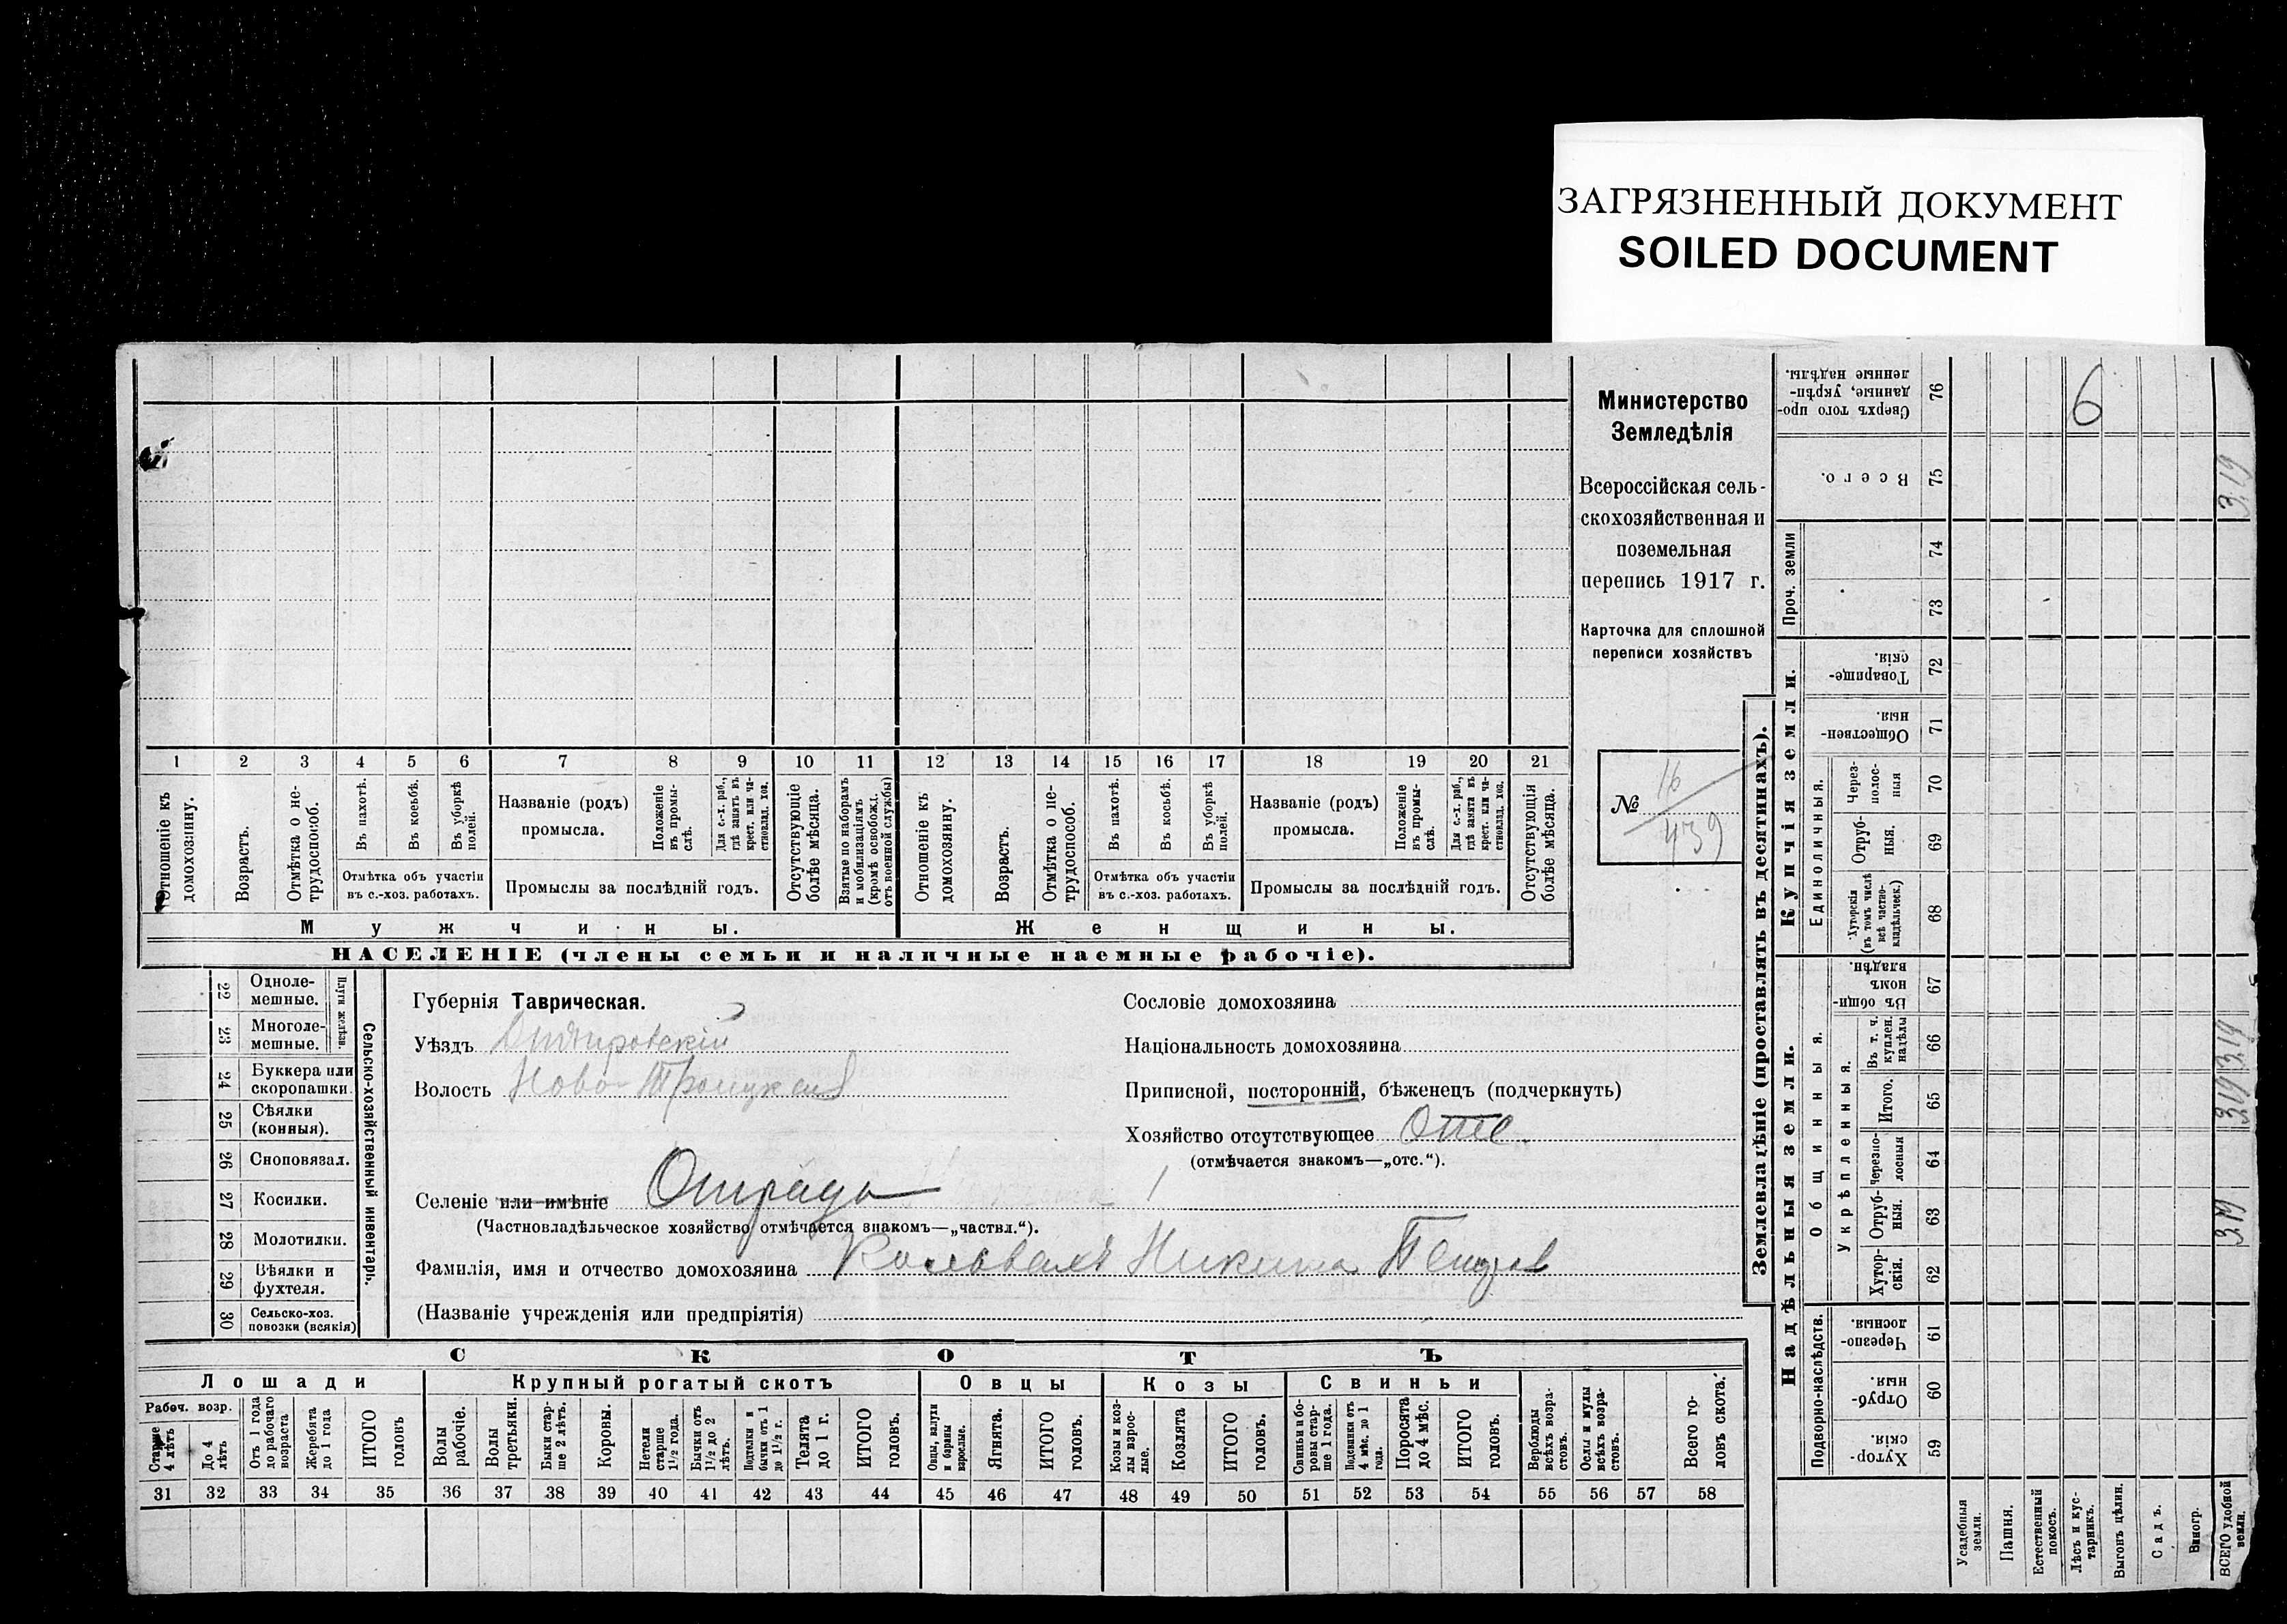 ЗАГРЯЗНЕННЫЙ ДОКУМЕНТ
SOILED DOCUMENT
Министерство
Земледѣлія
Всероссійская сель-
скохозяйственная и
поземельная
перепись 1917 г.
Карточка для сплошной
переписи хозяйствъ
№ 16
439
1 2 3 4 5 6 7 8 9 10 11 12 13 14 15 16 17 18 19 20 21
Отношеніе къ домохозяину.
Возрастъ.
Отмѣтка о не-трудоспособ.
Въ пахотѣ.
Въ косьбѣ.
Въ уборкѣ полей.
Отмѣтка объ участіи
въ с.-хоз. работахъ.
Названіе (родъ)
промысла.
Положеніе въ промы-слѣ.
Для с.-х. раб., гдѣ занятъ въ крест. или ча-стновлад. хоз.
Промыслы за послѣдній годъ.
Отсутствующіе болѣе мѣсяца.
Взятые по наборамъ и мобилизаціямъ (кромѣ освобожд. отъ военной службы)
Отношеніе къ домохозяину.
Возрастъ.
Отмѣтка о не-трудоспособ.
Въ пахотѣ.
Въ косьбѣ.
Въ уборкѣ полей.
Отмѣтка объ участіи
въ с.-хоз. работахъ.
Названіе (родъ)
промысла.
Положеніе въ промы-слѣ.
Для с.-х. раб., гдѣ занята въ крест. или ча-стновлад. хоз.
Промыслы за послѣдній годъ.
Отсутствующія болѣе мѣсяца.
Мужчины.
Женщины.
НАСЕЛЕНІЕ (члены семьи и наличные наемные рабочіе).
22 Одноле-мешные.
23 Многоле-мешные.
Плуги желѣзн.
24 Буккера или скоропашки.
25 Сѣялки (конныя).
26 Сноповязал.
27 Косилки.
28 Молотилки.
29 Вѣялки и фухтеля.
30 Сельско-хоз. повозки (всякія)
Сельско-хозяйственный инвентарь.
Губернія Таврическая.
Уѣздъ Днѣпровскій
Волость Ново-Троицкая
Селеніе или имѣніе Отрада
(Частновладѣльческое хозяйство отмѣчается знакомъ—„частвл.“).
Фамилія, имя и отчество домохозяина Никита Петров
(Названіе учрежденія или предпріятія)
Сословіе домохозяина
Національность домохозяина
Приписной, посторонній, бѣженецъ (подчеркнуть)
Хозяйство отсутствующее Отс.
(отмѣчается знакомъ—„отс.“).
СКОТЪ
Лошади
Крупный рогатый скотъ
Овцы
Козы
Свиньи
Рабоч. возр.
Старше 4 лѣтъ
До 4 лѣтъ
Отъ 1 года до рабочаго возраста
Жеребята до 1 года
ИТОГО головъ
Волы рабочіе.
Волы третьяки.
Быки стар-ше 2 лѣтъ.
Коровы.
Нетели старше 1½ года.
Бычки отъ 1½ до 2 лѣтъ.
Подтелки и бычки отъ 1 до 1½ г.
Телята до 1 г.
ИТОГО головъ.
Овцы, валухи и бараны взрослые.
Ягнята.
ИТОГО головъ.
Козы и коз-лы взрос-лые.
Козлята
ИТОГО головъ.
Свиньи и бо-ровы стар-ше 1 года.
Подсвинки отъ 4 мѣс. до 1 года.
Поросята до 4 мѣс.
ИТОГО головъ.
Верблюды всѣхъ возра-стовъ.
Ослы и мулы всѣхъ возра-стовъ.
Всего го-ловъ скота.
31 32 33 34 35 36 37 38 39 40 41 42 43 44 45 46 47 48 49 50 51 52 53 54 55 56 57 58
Землевладѣніе (проставлять въ десятинахъ).
Надѣльныя земли.
Купчія земли.
Проч. земли
Подворно-наслѣдств.
Общинныя.
Укрѣпленныя.
Единоличныя.
Хутор-скія. 59
Отруб-ныя. 60
Черезпо-лосныя. 61
Хутор-скія. 62
Отруб-ныя. 63
Черезпо-лосныя 64
Итого. 65
Въ т. ч. куплен. надѣлы 66
Въ общин-номъ владѣн. 67
Хуторскія (въ томъ числѣ всѣ частно-владѣльческ.) 68
Отруб-ныя. 69
Через-полос-ныя 70
Обществен-ныя. 71
Товарище-скія. 72
73
74
Всего. 75
Сверхъ того про-данные, укрѣп-ленные надѣлы. 76
6
Усадебныя земли.
Пашня.
Естественный покосъ.
Лѣсъ и кус-тарникъ.
Выгонъ цѣлин.
Садъ.
Виногр.
ВСЕГО удобной земли.
319
319
319
319